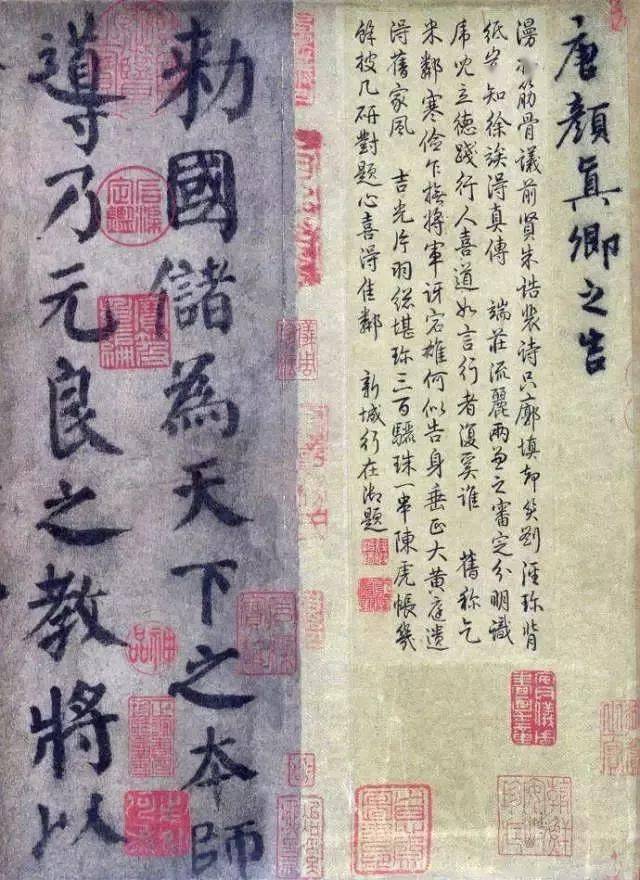 唐顏真卿之告
漫筋骨議前賢朱誥裴詩只廓填却笑劉涇珍背
紙知徐得真傳 端莊流麗兩兼之審定分明識
立德踐行人喜道如言行者復奚誰 舊稱乞
米鄰寒儉乍撫將軍訝宕雄何似告身垂正大黃庭遺
得舊家風 吉光片羽總堪珍三百驪珠一串陳虎帳幾
餘披几研對題心喜得佳鄰 新城行在御題
勅國儲為天下之本師
導乃元良之教將以
神品